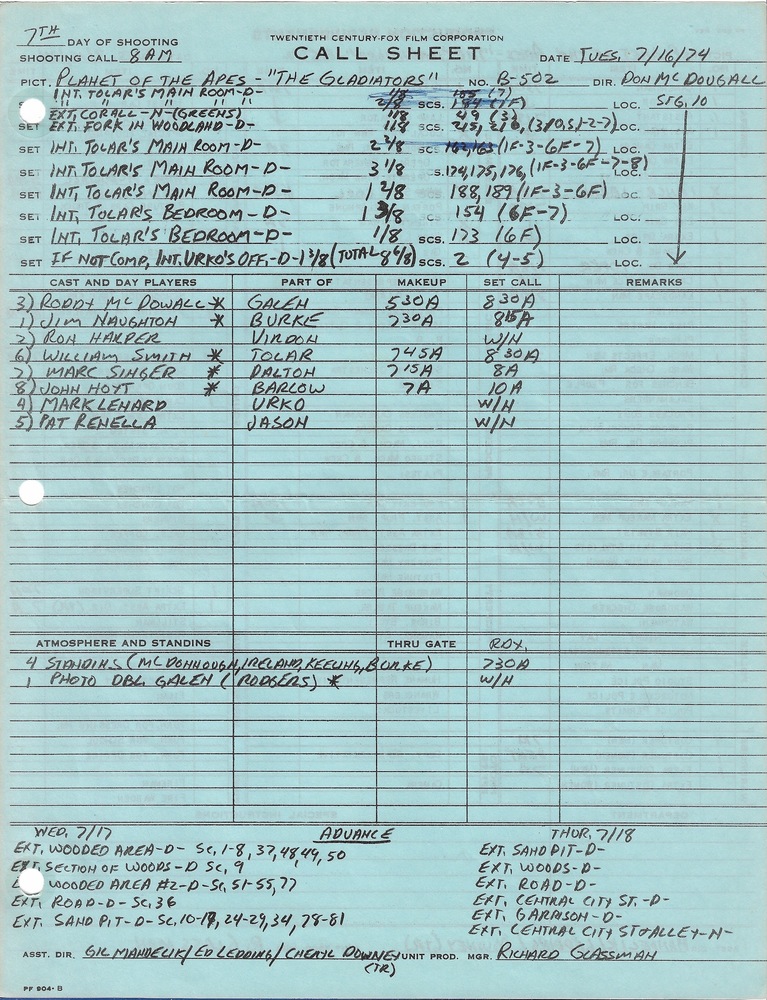 7TH DAY OF SHOOTING
TWENTIETH CENTURY-FOX FILM CORPORATION
SHOOTING CALL 8AM CALL SHEET DATE TUES, 7/16/74
PICT. PLANET OF THE APES - "THE GLADIATORS" NO. B-502 DIR. DON McDOUGALL
INT. TOLAR'S MAIN ROOM-D- 1/8 (7)
" " " " 2/8 SCS. 184 (1F) LOC. STG, 10
EXT. CORALL-N-(GREENS) 1/8 49 (3)
SET EXT. FORK IN WOODLAND-D- 1/8 215, 216, LOC.
SET INT. TOLAR'S MAIN ROOM-D- SCS 162, 163 (1F-3-6F-7) LOC.
SET INT. TOLAR'S MAIN ROOM-D- 3 1/8 SCS. 174, 175, 176, (1F-3-6F-7-8) LOC.
SET INT, TOLAR'S MAIN ROOM-D- 1 2/8 188, 189 (1F-3-6F) LOC.
SET INT, TOLAR'S BEDROOM-D- 1 3/8 SCS. 154 (6F-7) LOC.
SET INT, TOLAR'S BEDROOM-D- 1/8 SCS. 173 (6F) LOC.
SET IF NOT COMP, INT. URKO'S OFF,-D-1 3/8 (TOTAL 8 6/8) SCS. 2 (4-5) LOC.
CAST AND DAY PLAYERS PART OF MAKEUP SET CALL REMARKS
3) RODDY McDOWALL * GALEN 530A 830A
1) JIM NAUGHTON * BURKE 730A 815A
2) RON HARPER VIRDON W/N
6) WILLIAM SMITH * TOLAR 745A 830A
7) MARC SINGER * DALTON 715A 8A
8) JOHN HOYT * BARLOW 7A 10A
4) MARK LENARD URKO W/N
5) PAT RENELLA JASON W/N
ATMOSPHERE AND STANDINS THRU GATE RDY,
4 STANDINS (McDONNOUGH, IRELAND, KEELING, BURKE) 730A
1 PHOTO DBL. GALEN (RODGERS) * W/N
WED, 7/17 ADVANCE THUR, 7/18
EXT. WOODED AREA-D- SC, 1-8, 37, 48, 49, 50 EXT. SAND PIT-D-
EXT. SECTION OF WOODS-D SC, 9 EXT. WOODS-D-
WOODED AREA #2-D-SC, 51-55, 77 EXT. ROAD-D-
EXT. ROAD-D-SC, 36 EXT. CENTRAL CITY ST.-D-
EXT. SAND PIT-D-SC, 10-17, 24-29, 34, 78-81 EXT. GARRISON-D-
EXT. CENTRAL CITY ST & ALLEY-N-
ASST. DIR. GIL MANDELIK/ED LEDDING/CHERYL DOWNEY UNIT PROD. MGR. RICHARD GLASSMAN
(TR)
PF 904-B